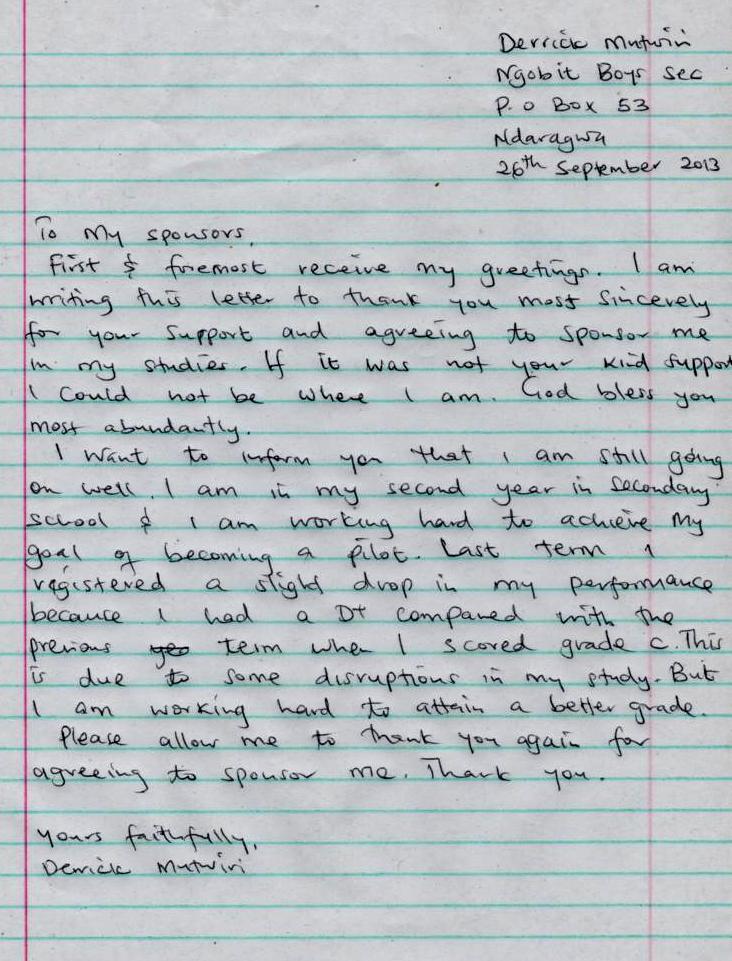 Derrick Mutwiri
Ngobit Boys Sec
P.o Box 53
Ndaragwa
26th September 2013
To My sponsors,
First & foremost receive my greetings. I am
writing this letter to thank you most sincerely
for your support and agreeing to sponsor me
in my studies. If it was not your kind support
I could not be where I am. God bless you
most abundantly.
I want to inform you that I am still going
on well. I am in my second year in Secondary
school & I am working hard to achieve my
goal of becoming a pilot. Last term I
registered a slight drop in my performance
because I had a D+ compared with the
previous term when I scored grade C. This
is due to some disruptions in my study. But
I am working hard to attain a better grade.
Please allow me to thank you again for
agreeing to sponsor me. Thank you.
yours faithfully,
Derrick Mutwiri